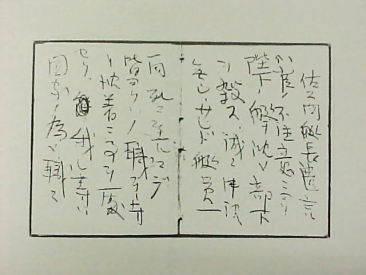 佐久間艇長遺言
小官ノ不注意ニヨリ
陛下ノ艇ヲ沈メ部下
ヲ殺ス、誠ニ申訳
無シ、サレド艇員一
同死ニ至ルマデ
皆ヨクソノ職ヲ守
リ沈着ニ
セリ、我レ等ハ
国家ノ為メ職ニ